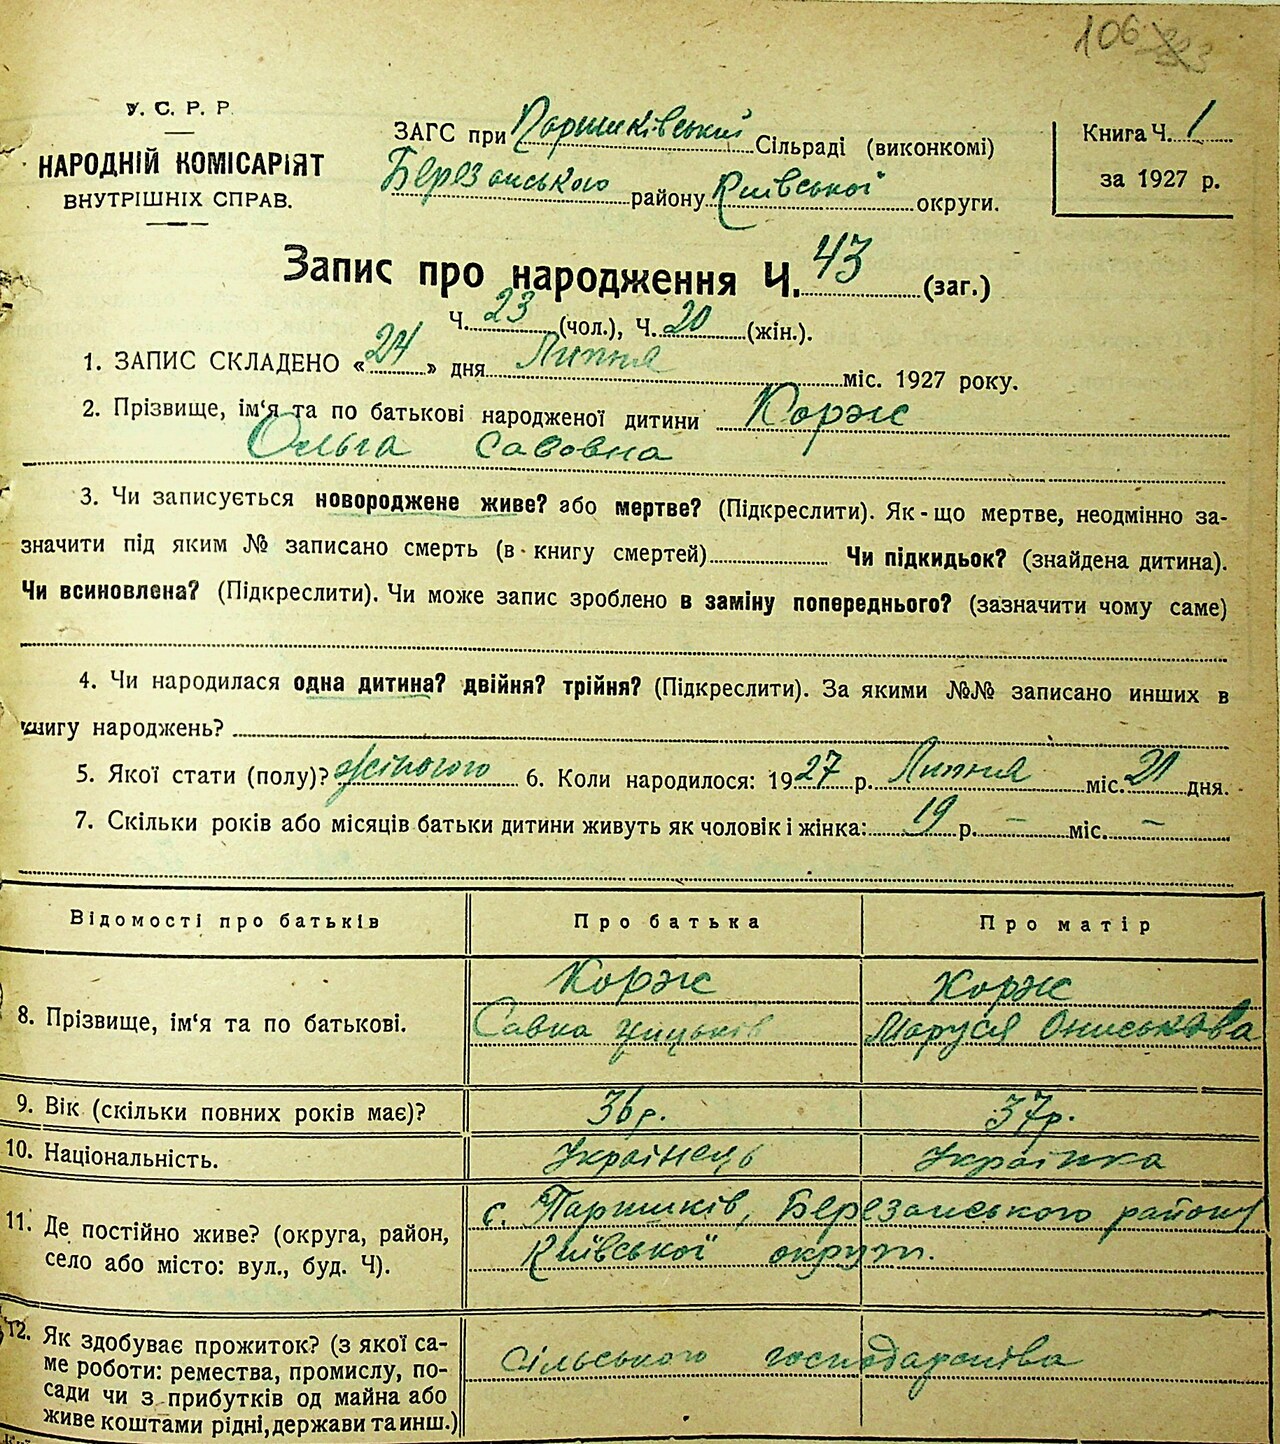 106
У. С. Р. Р.
НАРОДНІЙ КОМІСАРІЯТ
ВНУТРІШНІХ СПРАВ.
ЗАГС при Паршиківський Сільраді (виконкомі)
Березанського району Київської округи.
Книга Ч. 1
за 1927 р.
Запис про народження Ч. 43 (заг.)
Ч. 23 (чол.), Ч. 20 (жін.).
1. ЗАПИС СКЛАДЕНО «24» дня Липня міс. 1927 року.
2. Прізвище, ім‘я та по батькові народженої дитини Корж
Ольга Савовна
3. Чи записується новороджене живе? або мертве? (Підкреслити). Як-що мертве, неодмінно за-
значити під яким № записано смерть (в книгу смертей) Чи підкидьок? (знайдена дитина).
Чи всиновлена? (Підкреслити). Чи може запис зроблено в заміну попереднього? (зазначити чому саме)
4. Чи народилася одна дитина? двійня? трійня? (Підкреслити). За якими №№ записано инших в
книгу народжень?
5. Якої стати (полу)? жіночого 6. Коли народилося: 1927 р. Липня міс. 21 дня.
7. Скільки років або місяців батьки дитини живуть як чоловік і жінка: 19 р. — міс. —
Відомості про батьків Про батька Про матір
8. Прізвище, ім‘я та по батькові. Корж Корж
Савка Маруся Ониськова
9. Вік (скільки повних років має)? 36 р. 37 р.
10. Національність. Українець Українка
11. Де постійно живе? (округа, район,
село або місто: вул., буд. Ч).
с. Паришків, Березанського району
Київської округи.
12. Як здобуває прожиток? (з якої са-
ме роботи: ремества, промислу, по-
сади чи з прибутків од майна або
живе коштами рідні, держави та инш.)
сільського господарства